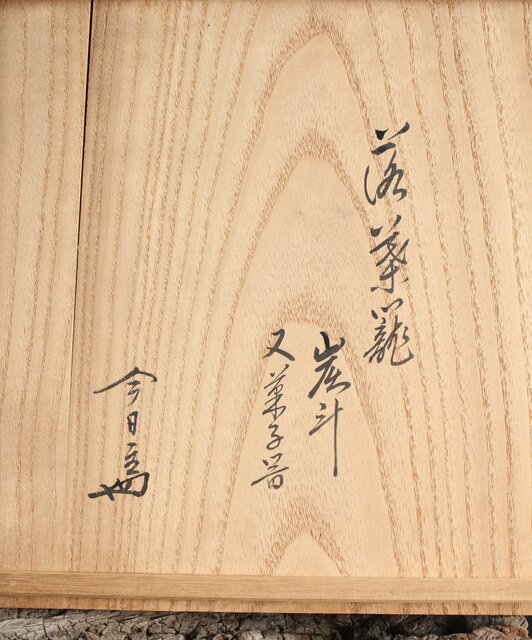 落葉籠
炭斗
又菓子器
今日庵